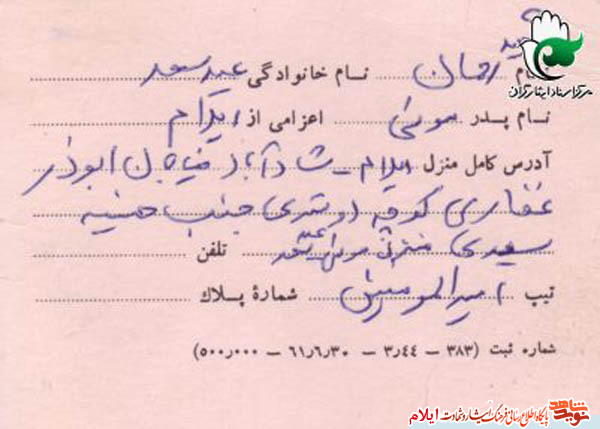 شهید
نام رحمان نام خانوادگی عیدسعد
نام پدر موسی اعزامی از ایلام
آدرس کامل منزل ایلام - شادآباد خیابان ابوذر
غفاری کوچه دوستدی جنب حسینیه
سعدی منزل موسی عیدسعد تلفن
تیپ امیرالمومنین شمارهٔ پلاک
شماره ثبت (۳۸۳ – ۳٫۴۴ – ۶۱٫۶٫۳۰ – ۵۰۰٫۰۰۰)
مرکز اسناد ایثارگران
نوید شاهد پایگاه اطلاع رسانی فرهنگ ایثار و شهادت ایلام